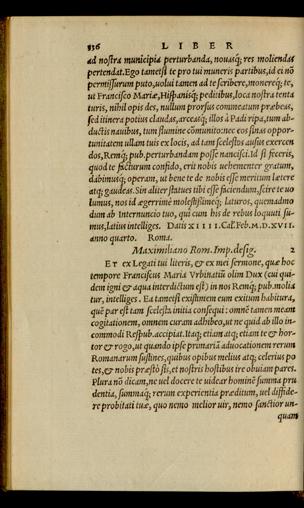 836 LIBER
ad nostra municipia perturbanda, nouasq́; res moliendas
pertendat. Ego tametsi te pro tui muneris partibus, id ei nõ
permissurum puto, uolui tamen ad te scribere, monereq́; te,
ut Francisco Mariæ, Hispanisq́; peditibus, loca nostra tenta
turis, nihil opis des, nullum prorsus commeatum præbeus,
sed itinera potius claudas, arceasq́; illos à Padi ripa, tum ab-
ductis nauibus, tum flumine cõmunito: nec eos sinas oppor-
tunitatem ullam tuis ex locis, ad tam scelestos ausus exercen
dos, Remq́; pub. perturbandam posse nancisci. Id si feceris,
quod te facturum confido, erit nobis uehementer gratum,
dabimusq́; operam, ut bene te de nobis esse meritum lætere
atq́; gaudeas. Sin aliter statues tibi esse faciendum, scire te uo
lumus, nos id ægerrimè molestißimeq́; laturos, quemadmo
dum ab Internuncio tuo, qui cum his de rebus loquuti su-
mus, latius intelliges. Datis XIIII. Cal. Feb. M.D.XVII.
anno quarto. Roma.
Maximiliano Rom. Imp. desig. 2
ET ex Legati tui literis, & ex mei sermone, quæ hoc
tempore Franciscus Maria Vrbinatiũ olim Dux (cui qui-
dem igni & aqua interdictum est) in nos Remq́; pub. molia
tur, intelliges. Ea tametsi existimem eum exitum habitura,
quẽ par est tam scelesta initia consequi: omnẽ tamen meam
cogitationem, omnem curam adhibeo, ut ne quid ab illo in-
commodi Respub. accipiat. Itaq́; etiam atq́; etiam te & hor-
tor & rogo, ut quando ipse primariã aduocationem rerum
Romanarum sustines, quibus opibus melius atq́; celerius po
tes, & nobis præstò sis, et nostris hostibus ire obuiam pares.
Plura nõ dicam, ne uel docere te uidear hominẽ summa pru
dentia, summaq́; rerum experientia præditum, uel diffide-
re probitati tuæ, quo nemo melior uir, nemo sanctior un-
quam